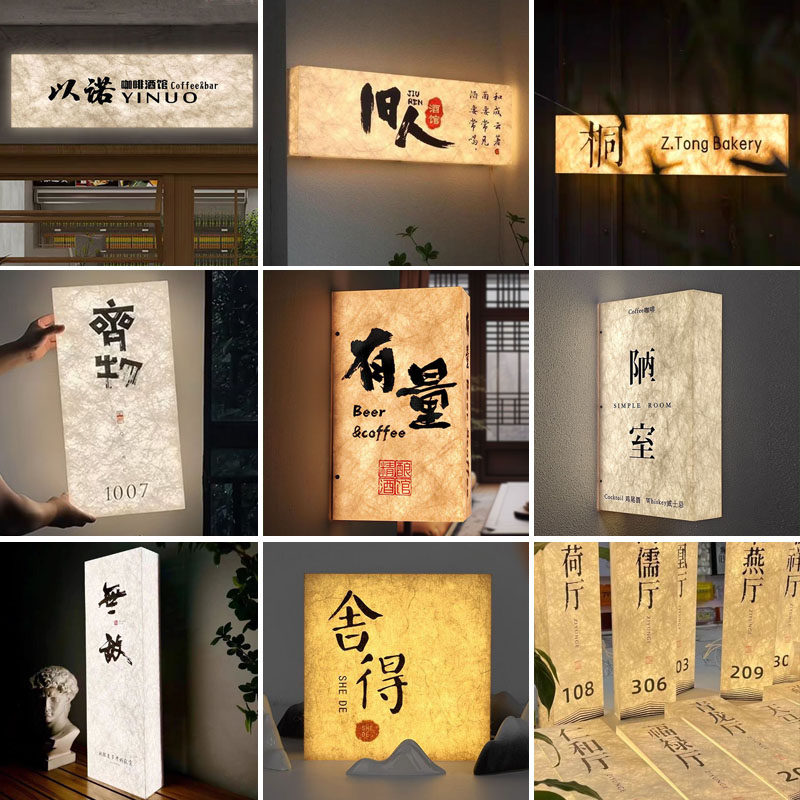 以诺 咖啡酒馆 Coffee&bar
YINUO
旧人
JIU
REN
酒馆
桐 Z.Tong Bakery
齊物
1007
有量
Beer
&coffee
精酿
酒馆
Coffee咖啡
陋
SIMPLE ROOM
室
Cocktail 鸡尾酒 Whiskey威士忌
無故
舍得
SHE DE
SHE
DE
荷厅
108
儒厅
306
厅
03
燕厅
209
厅
30
仁和厅
福禄厅
青龙厅